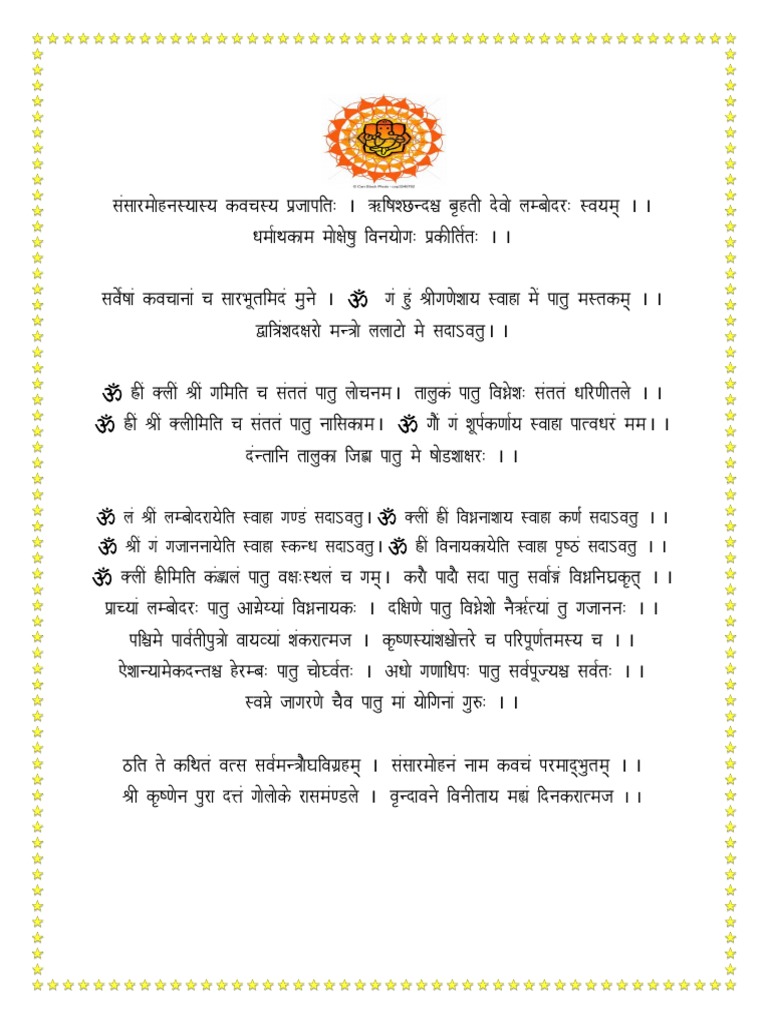 संसारमोहनस्यास्य कवचस्य प्रजापतिः । ऋषिश्छन्दश्च बृहती देवो लम्बोदरः स्वयम् । ।
धर्माथकाम मोक्षेषु विनयोगः प्रकीर्तितः । ।
सर्वेषां कवचानां च सारभूतमिदं मुने । ॐ गं हुं श्रीगणेशाय स्वाहा में पातु मस्तकम् । ।
द्वात्रिंशदक्षरो मन्त्रो ललाटो मे सदाऽवतु। ।
ॐ ह्रीं क्लीं श्रीं गमिति च संततं पातु लोचनम। तालुकं पातु विघ्नेशः संततं धरिणीतले । ।
ॐ ह्रीं श्रीं क्लीमिति च संततं पातु नासिकाम। ॐ गौं गं शूर्पकर्णाय स्वाहा पात्वधरं मम। ।
दंन्तानि तालुका जिह्वा पातु मे षोडशाक्षरः । ।
ॐ लं श्रीं लम्बोदरायेति स्वाहा गण्डं सदाऽवतु। ॐ क्लीं ह्रीं विघ्ननाशाय स्वाहा कर्ण सदाऽवतु । ।
ॐ श्रीं गं गजाननायेति स्वाहा स्कन्ध सदाऽवतु। ॐ ह्रीं विनायकायेति स्वाहा पृष्ठं सदाऽवतु । ।
ॐ क्लीं ह्रीमिति पातु वक्षःस्थलं च गम्। करौ पादौ सदा पातु सर्वाङ्गं विघ्ननिघ्रकृत् । ।
प्राच्यां लम्बोदरः पातु आग्नेय्यां विघ्ननायकः । दक्षिणे पातु विघ्नेशो नैर्ऋत्यां तु गजाननः । ।
पश्चिमे पार्वतीपुत्रो वायव्यां शंकरात्मज । कृष्णस्यांशश्चोत्तरे च परिपूर्णतमस्य च । ।
ऐशान्यामेकदन्तश्च हेरम्बः पातु चोर्घ्वतः । अधो गणाधिपः पातु सर्वपूज्यश्च सर्वतः । ।
स्वप्ने जागरणे चैव पातु मां योगिनां गुरुः । ।
ठति ते कथितं वत्स सर्वमन्त्रौघविग्रहम् । संसारमोहनं नाम कवचं परमाद्भुतम् । ।
श्री कृष्णेन पुरा दत्तं गोलोके रासमंण्डले । वृन्दावने विनीताय मह्यं दिनकरात्मज । ।